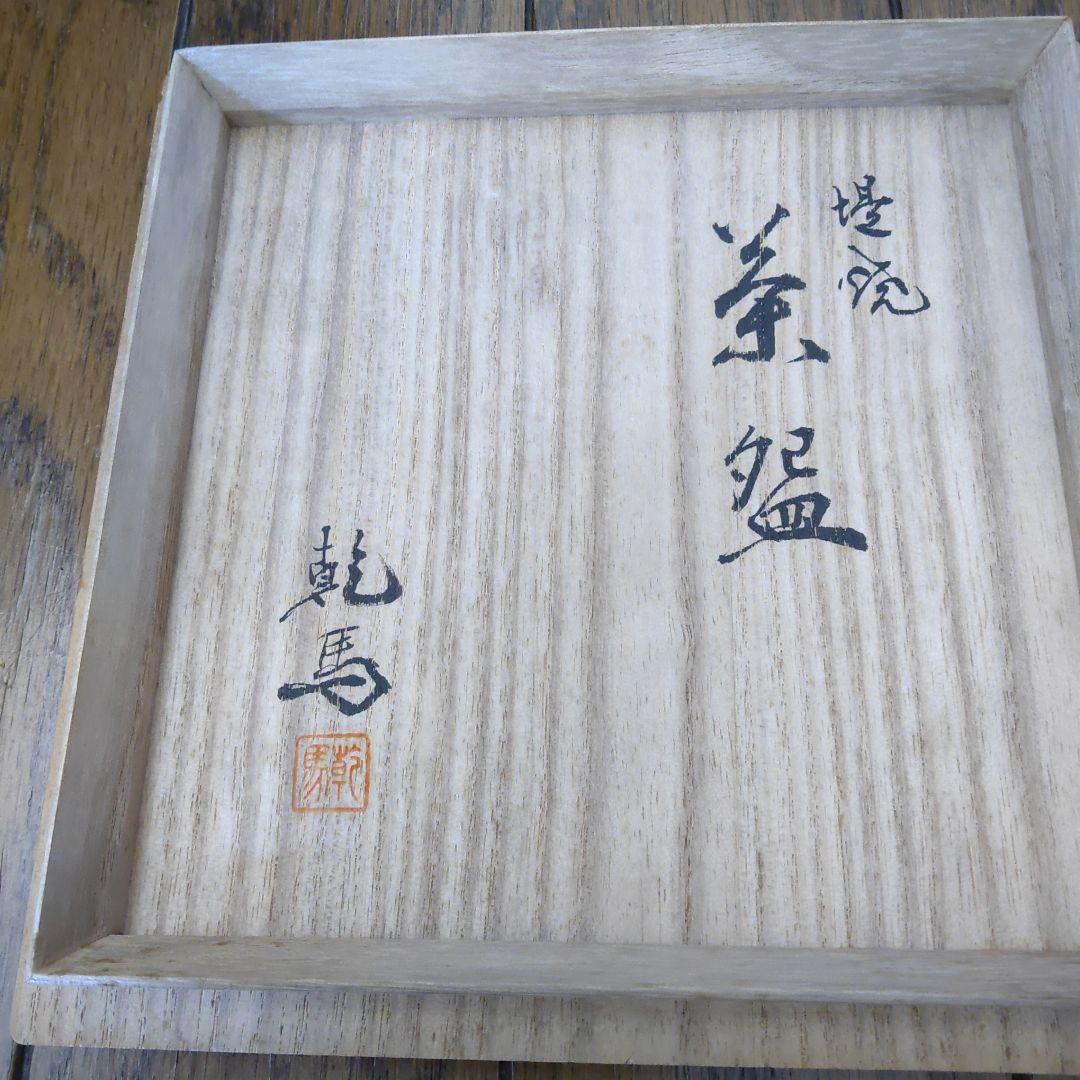 堤焼
茶盌
乾馬
乾馬